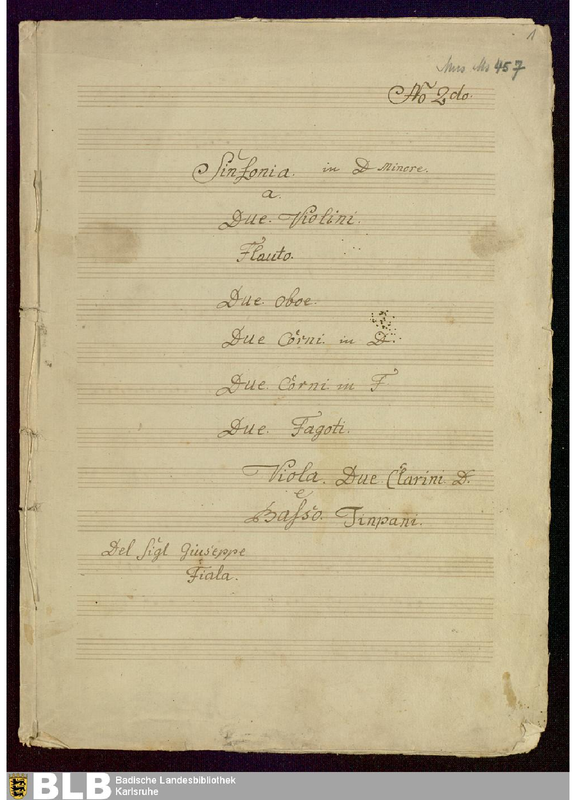 1
Mus Ms 457
No 2do.
Sinfonia. in D Minore.
a.
Due. Violini.
Flauto.
Due. Oboe.
Due Corni. in D.
Due. Corni in F
Due. Fagoti.
Viola. Due Clarini D.
e
Basso. Tinpani.
Del Sigl Giuseppe
Fiala.
BLB Badische Landesbibliothek
Karlsruhe